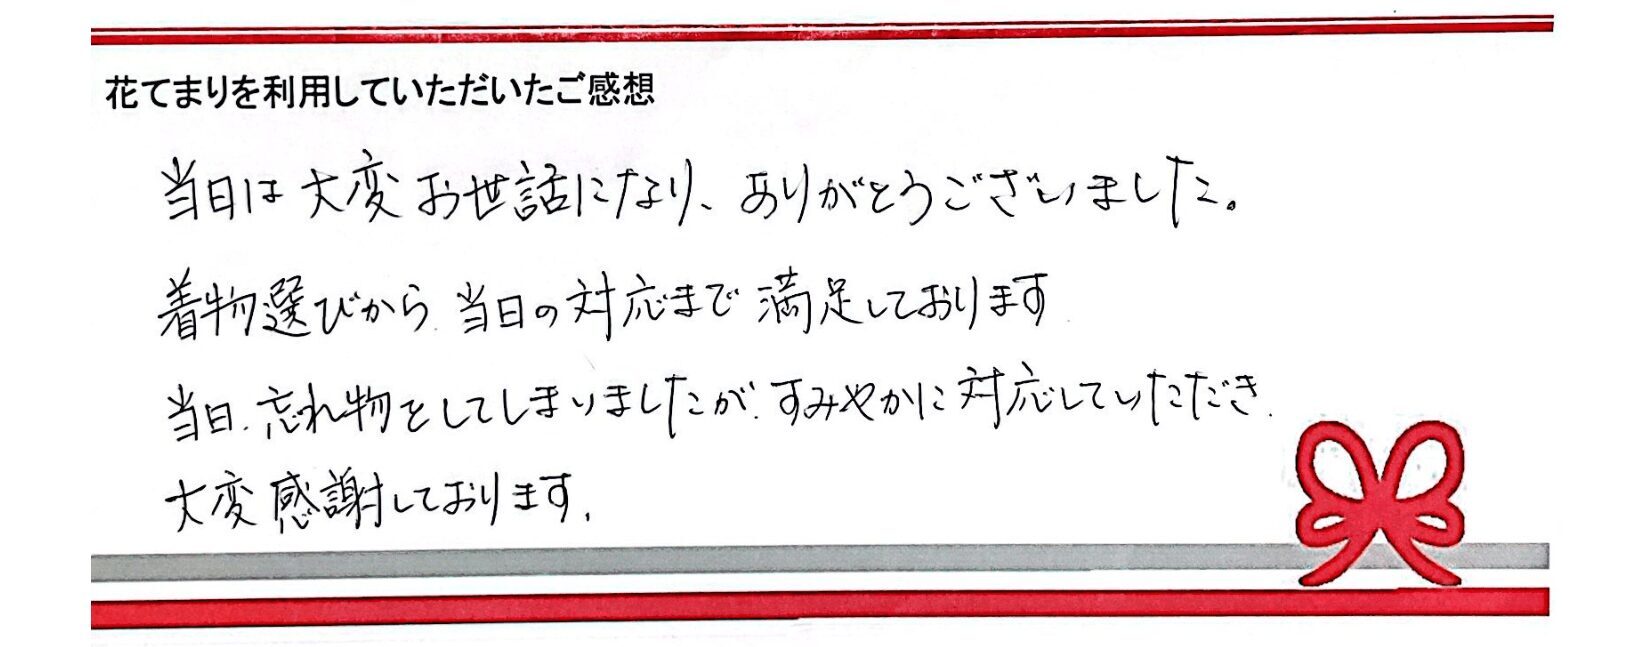 花てまりを利用していただいたご感想
当日は大変お世話になり、ありがとうございました。
着物選びから当日の対応まで満足しております
当日、忘れ物をしてしまいましたが、すみやかに対応していただき、
大変感謝しております。